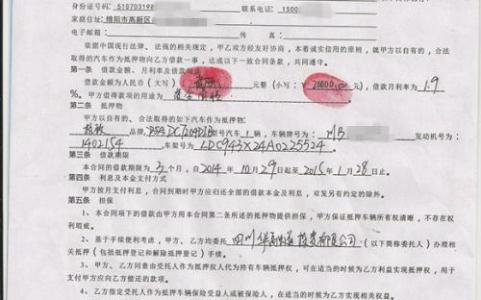 身份证号码：51070319 联系电话：1500
家庭住址：绵阳市高新区
电子邮箱： 传真：
依据中国现行法律、法规的相关规定，甲乙双方经友好协商，本着诚实信用的原则，就甲方以自有的、合法
取得的汽车作为抵押物向乙方借款一事，达成以下一致合同条款，共同遵守。
第一条 借款金额、月利率及借款用途
借款金额为人民币（大写） 元整（小写：￥ ），借款月利率为1.9
%。甲方借得款项的用途为
第二条 抵押物
甲方以自有的、合法取得的如下汽车作为抵押物：
品牌， 型号汽车1辆，车辆牌号为：川B 发动机号为：
1402154 车架号为 LDC943X24A0225524
第三条 借款期限
本合同的借款期限为3个月，自2014年10月29日起至2015年1月28日止。
第四条 利息及本金支付方式
甲方按月支付利息，合同到期时甲方应归还全部的借款本金及利息，双方另有约定的除外。
第五条 担保
1、本合同项下的借款由甲方用本合同第二条所述的抵押物提供担保，甲方保证抵押车辆所有权清晰，不存在权
利瑕疵。
2、基于手续便利考虑，甲方、乙方均委托四川 投资有限公司（以下简称受托人）办理相
关抵押（包括抵押登记和解除抵押登记）手续。
3、甲方、乙方同意由受托人作为抵押权人代为持有车辆抵押权，可在适当的时候为乙方利益实现抵押权，用于
支付甲方应向乙方偿还的款项。
4、乙方指定受托人作为抵押车辆保险受益人或被保险人，在适当的时候为乙方利益实现相关权利。